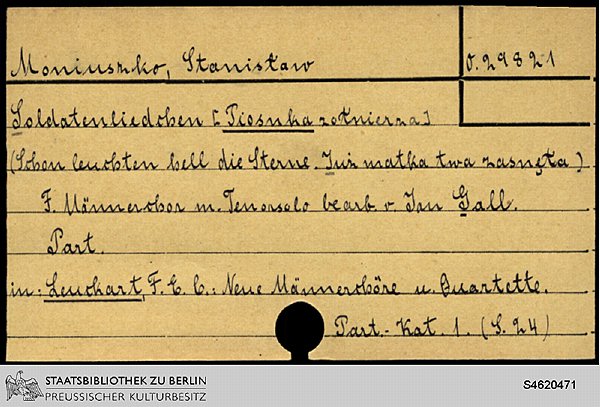 Moniuszko, Stanisław
O. 29821
Soldatenliedchen [Piosnka żołnierza]
(Schon leuchten hell die Sterne. Już matka twa zasnęła)
F. Männerchor m. Tenorsolo bearb. v. Jan Gall.
Part.
in: Leuckart, F. E. C.: Neue Männerchöre u. Quartette.
Part.- Kat. 1. (S. 24)
STAATSBIBLIOTHEK ZU BERLIN
PREUSSISCHER KULTURBESITZ
S4620471